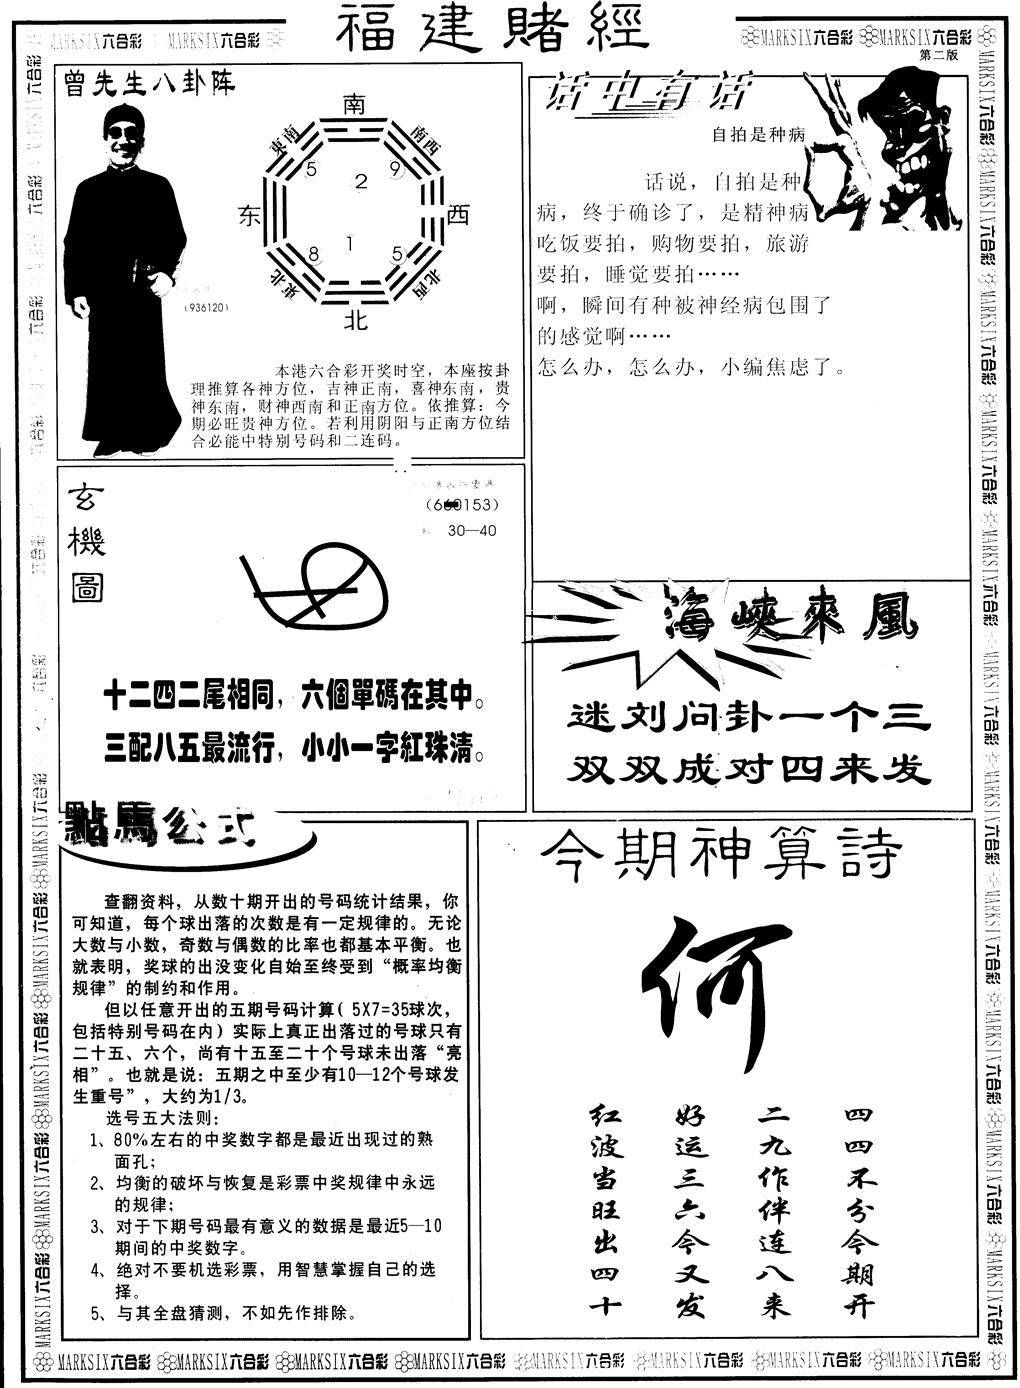 福建賭經
MARKSIX六合彩 MARKSIX六合彩
MARKSIX六合彩 MARKSIX六合彩
第二版
曾先生八卦阵
南
東南
南西
5
2
9
东
西
8
1
5
東北
北西
北
(936120)
本港六合彩开奖时空，本座按卦
理推算各神方位，吉神正南，喜神东南，贵
神东南，财神西南和正南方位。依推算：今
期必旺贵神方位。若利用阴阳与正南方位结
合必能中特别号码和二连码。
话中有话
自拍是种病
话说，自拍是种
病，终于确诊了，是精神病
吃饭要拍，购物要拍，旅游
要拍，睡觉要拍……
啊，瞬间有种被神经病包围了
的感觉啊……
怎么办，怎么办，小编焦虑了。
玄機圖
30—40
十二四二尾相同，六個單碼在其中。
三配八五最流行，小小一字紅珠清。
海峽來風
迷刘问卦一个三
双双成对四来发
點馬公式
查翻资料，从数十期开出的号码统计结果，你
可知道，每个球出落的次数是有一定规律的。无论
大数与小数，奇数与偶数的比率也都基本平衡。也
就表明，奖球的出没变化自始至终受到“概率均衡
规律”的制约和作用。
但以任意开出的五期号码计算( 5X7=35球次，
包括特别号码在内）实际上真正出落过的号球只有
二十五、六个，尚有十五至二十个号球未出落“亮
相”。也就是说：五期之中至少有10—12个号球发
生重号”，大约为1/3。
选号五大法则：
1、80%左右的中奖数字都是最近出现过的熟
面孔；
2、均衡的破坏与恢复是彩票中奖规律中永远
的规律；
3、对于下期号码最有意义的数据是最近5—10
期间的中奖数字。
4、绝对不要机选彩票，用智慧掌握自己的选
择。
5、与其全盘猜测，不如先作排除。
今期神算詩
何
四四不分今期开
二九作伴连八来
好运三六今又发
红波当旺出四十
MARKSIX六合彩 MARKSIX六合彩 MARKSIX六合彩 MARKSIX六合彩 MARKSIX六合彩 MARKSIX六合彩 MARKSIX六合彩 MARKSIX六合彩